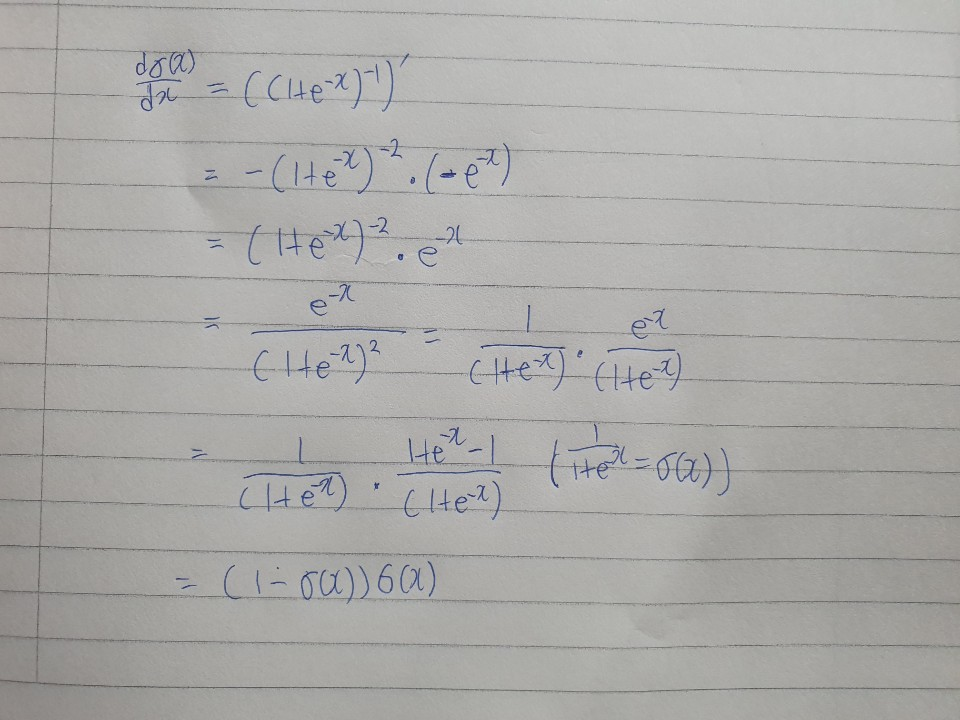 dσ(x)/dx = ((1+e^-x)^-1)′
= -(1+e^-x)^-2 · (-e^-x)
= (1+e^-x)^-2 · e^-x
= e^-x/(1+e^-x)^2 = 1/(1+e^-x) · e^-x/(1+e^-x)
= 1/(1+e^-x) · 1+e^-x-1/(1+e^-x) (1/1+e^-x = σ(x))
= (1-σ(x))σ(x)